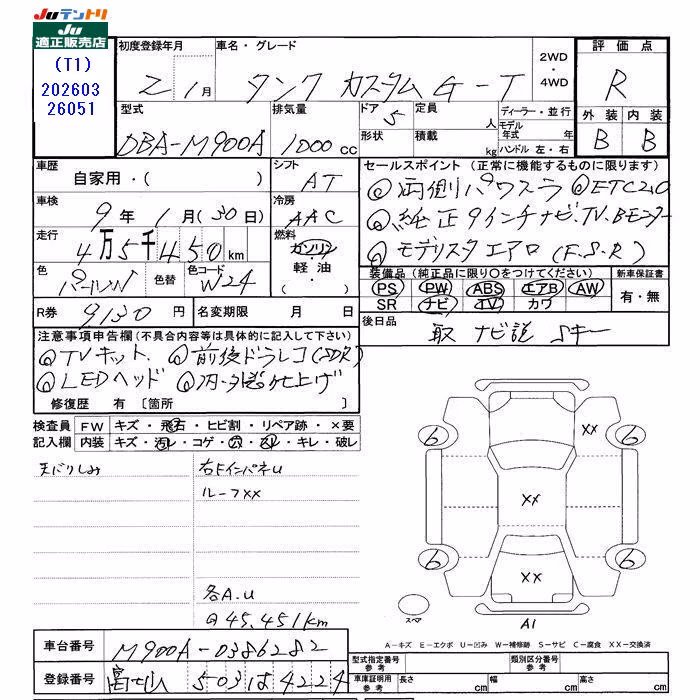 JUテントリ
JU
適正販売店
(T1)
202603
26051
初度登録年月
2 1月
車名・グレード
タンク カスタム G-T
2WD
・
4WD
評価点
R
外装 内装
B B
型式
DBA-M900A
排気量
1000cc
ドア 5
形状
定員 人
積載 kg
ディーラー・並行
モデル
年式 年
ハンドル 左・右
車歴
自家用・( )
シフト
AT
車検
9年 1月(30日)
冷房
AAC
走行
4万5千450km
燃料
ガソリン
・
軽油
・
色
パールW
色替
色コード
W24
R券 9130円
名変期限 月 日
セールスポイント (正常に機能するものに限ります)
◎両側パワスラ ◎ETC2.0
◎純正9インチナビ.TV.Bモニター
◎モデリスタエアロ(F.S.R)
装備品(純正品に限り〇をつけてください)
PS PW ABS エアB AW
SR ナビ TV カワ
新車保証書
有・無
後日品
取 ナビ説 Sキー
注意事項申告欄(不具合内容等は具体的に記入して下さい)
◎TVキット. ◎前後ドラレコ(SDR)
◎LEDヘッド ◎内・外装仕上げ
修復歴 有〔箇所 〕
検査員
記入欄
FW キズ・飛石・ヒビ割・リペア跡・×要
内装 キズ・汚レ・コゲ・穴・スレ・キレ・破レ
天バリしみ
右Fインパネu
ルーフXX
各A.u
@45,451km
6 6 6 6
XX
XX
XX
A1
スペア
A-キズ E-エクボ U-凹み W-補修跡 S-サビ C-腐食 XX-交換済
車台番号 M900A-0386282
登録番号 富山 503 は 4224
型式指定番号
参考
類別区分番号
参考
車庫証明用
参考
長さ cm 幅 cm 高さ cm